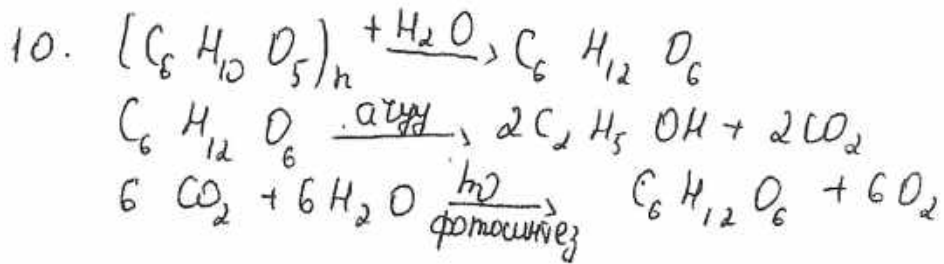 10. (C₆H₁₀O₅)ₙ +H₂O → C₆H₁₂O₆
C₆H₁₂O₆ ачуу → 2C₂H₅OH + 2CO₂
6CO₂ + 6H₂O hν фотосинтез → C₆H₁₂O₆ + 6O₂